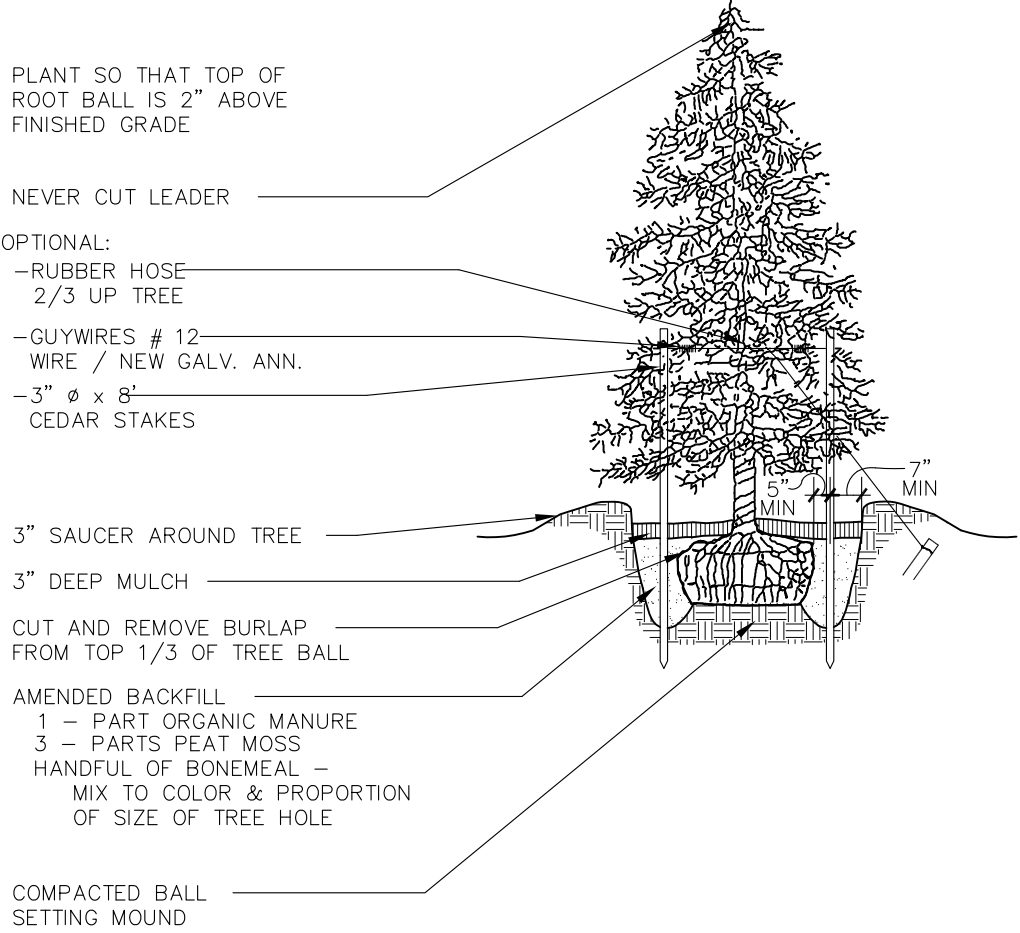 PLANT SO THAT TOP OF
ROOT BALL IS 2" ABOVE
FINISHED GRADE
NEVER CUT LEADER
OPTIONAL:
-RUBBER HOSE
2/3 UP TREE
-GUYWIRES # 12
WIRE / NEW GALV. ANN.
-3" ø x 8'
CEDAR STAKES
5"
MIN
7"
MIN
3" SAUCER AROUND TREE
3" DEEP MULCH
CUT AND REMOVE BURLAP
FROM TOP 1/3 OF TREE BALL
AMENDED BACKFILL
1 - PART ORGANIC MANURE
3 - PARTS PEAT MOSS
HANDFUL OF BONEMEAL -
MIX TO COLOR & PROPORTION
OF SIZE OF TREE HOLE
COMPACTED BALL
SETTING MOUND